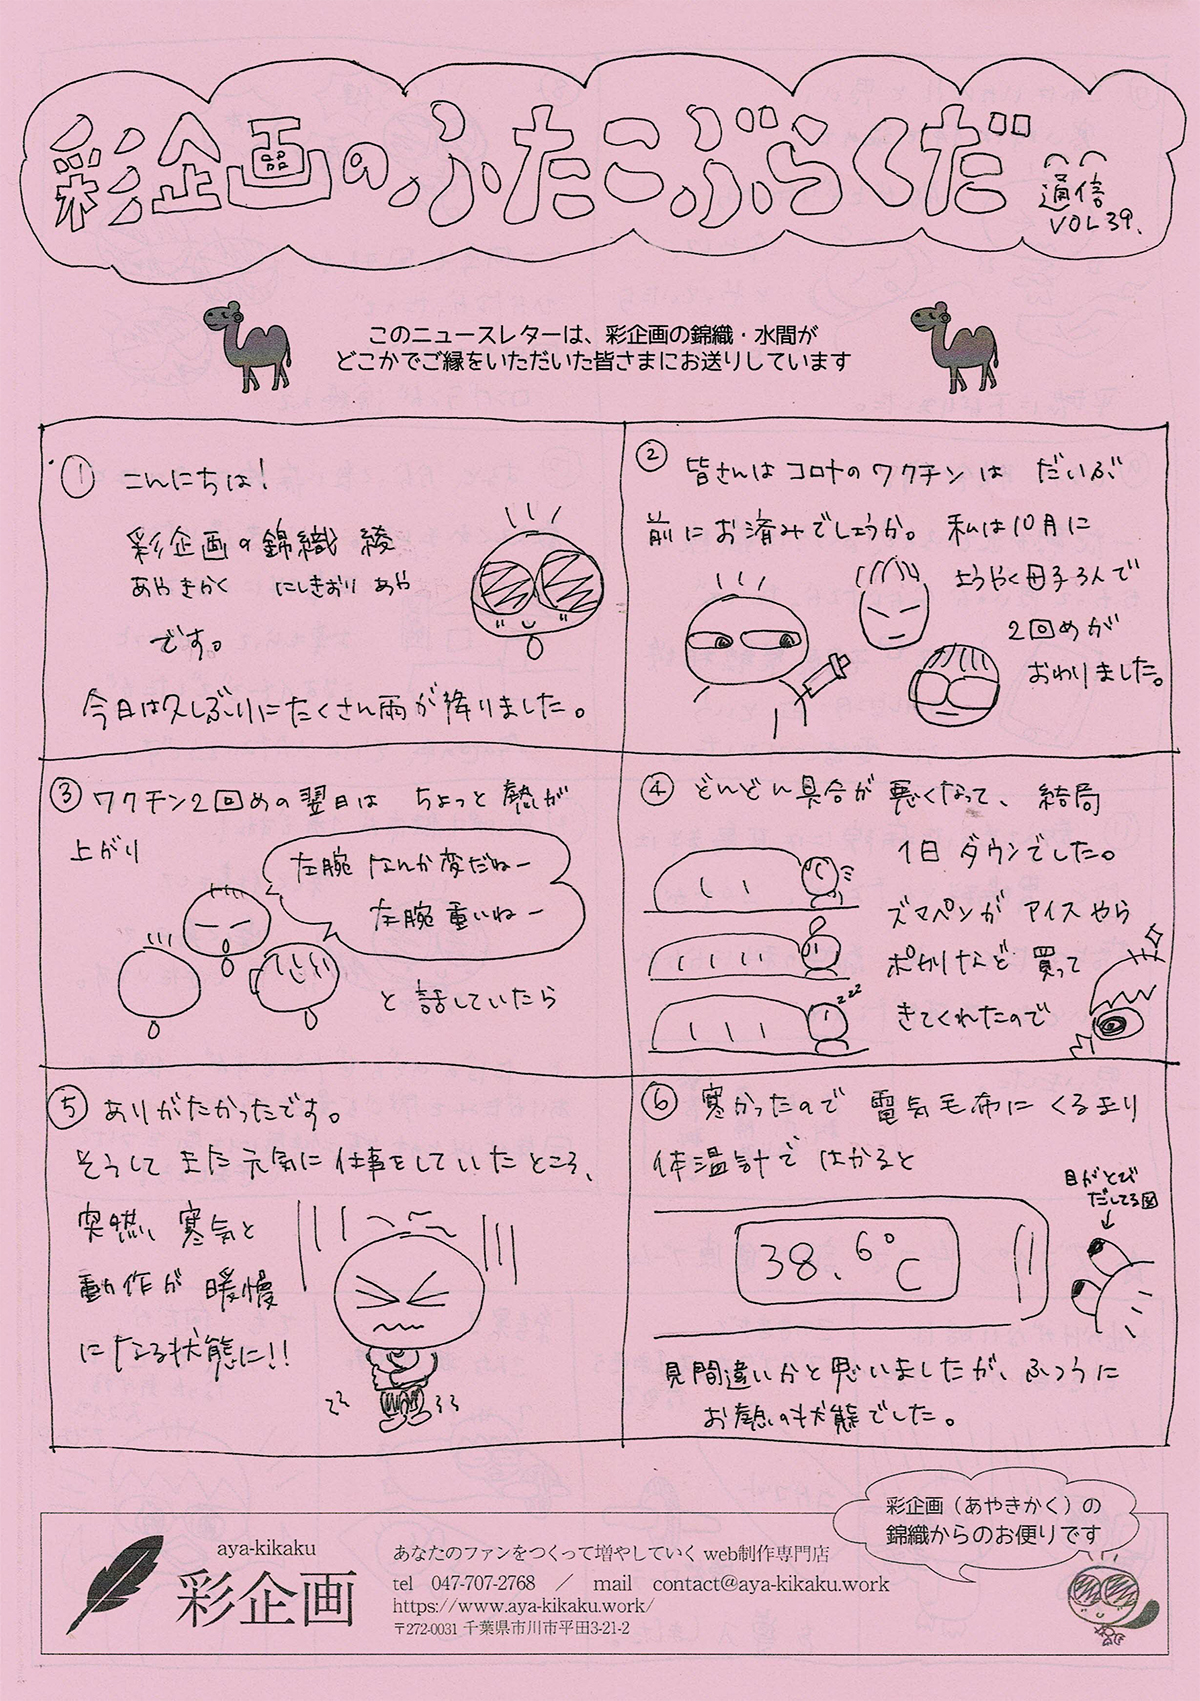 彩企画のふたこぶらくだ
通信
VOL39.
このニュースレターは、彩企画の錦織・水間が
どこかでご縁をいただいた皆さまにお送りしています
① こんにちは!
彩企画の錦織 綾
あやきかく にしきおり あや
です。
今日は久しぶりにたくさん雨が降りました。
② 皆さんはコロナのワクチンは だいぶ
前にお済みでしょうか。 私は10月に
ようやく母子3人で
2回めが
おわりました。
③ ワクチン2回めの翌日は ちょっと熱が
上がり
左腕 なんか変だねー
左腕 重いねー
と 話していたら
④ どんどん具合が悪くなって、結局
1日 ダウンでした。
ズマペンが アイスやら
ポカリなど 買って
きてくれたので
zzz
⑤ ありがたかったです。
そうして また 元気に 仕事をしていたところ、
突然、寒気と
動作が 緩慢
になる状態に!!
⑥ 寒かったので 電気毛布に くるまり
体温計で はかると
目がとび
だしてる図
38.6°C
見間違いかと思いましたが、ふつうに
お熱の状態でした。
彩企画(あやきかく)の
錦織からのお便りです
aya-kikaku
彩企画
あなたのファンをつくって増やしていく web制作専門店
tel 047-707-2768 / mail contact@aya-kikaku.work
https://www.aya-kikaku.work/
〒272-0031 千葉県市川市平田3-21-2